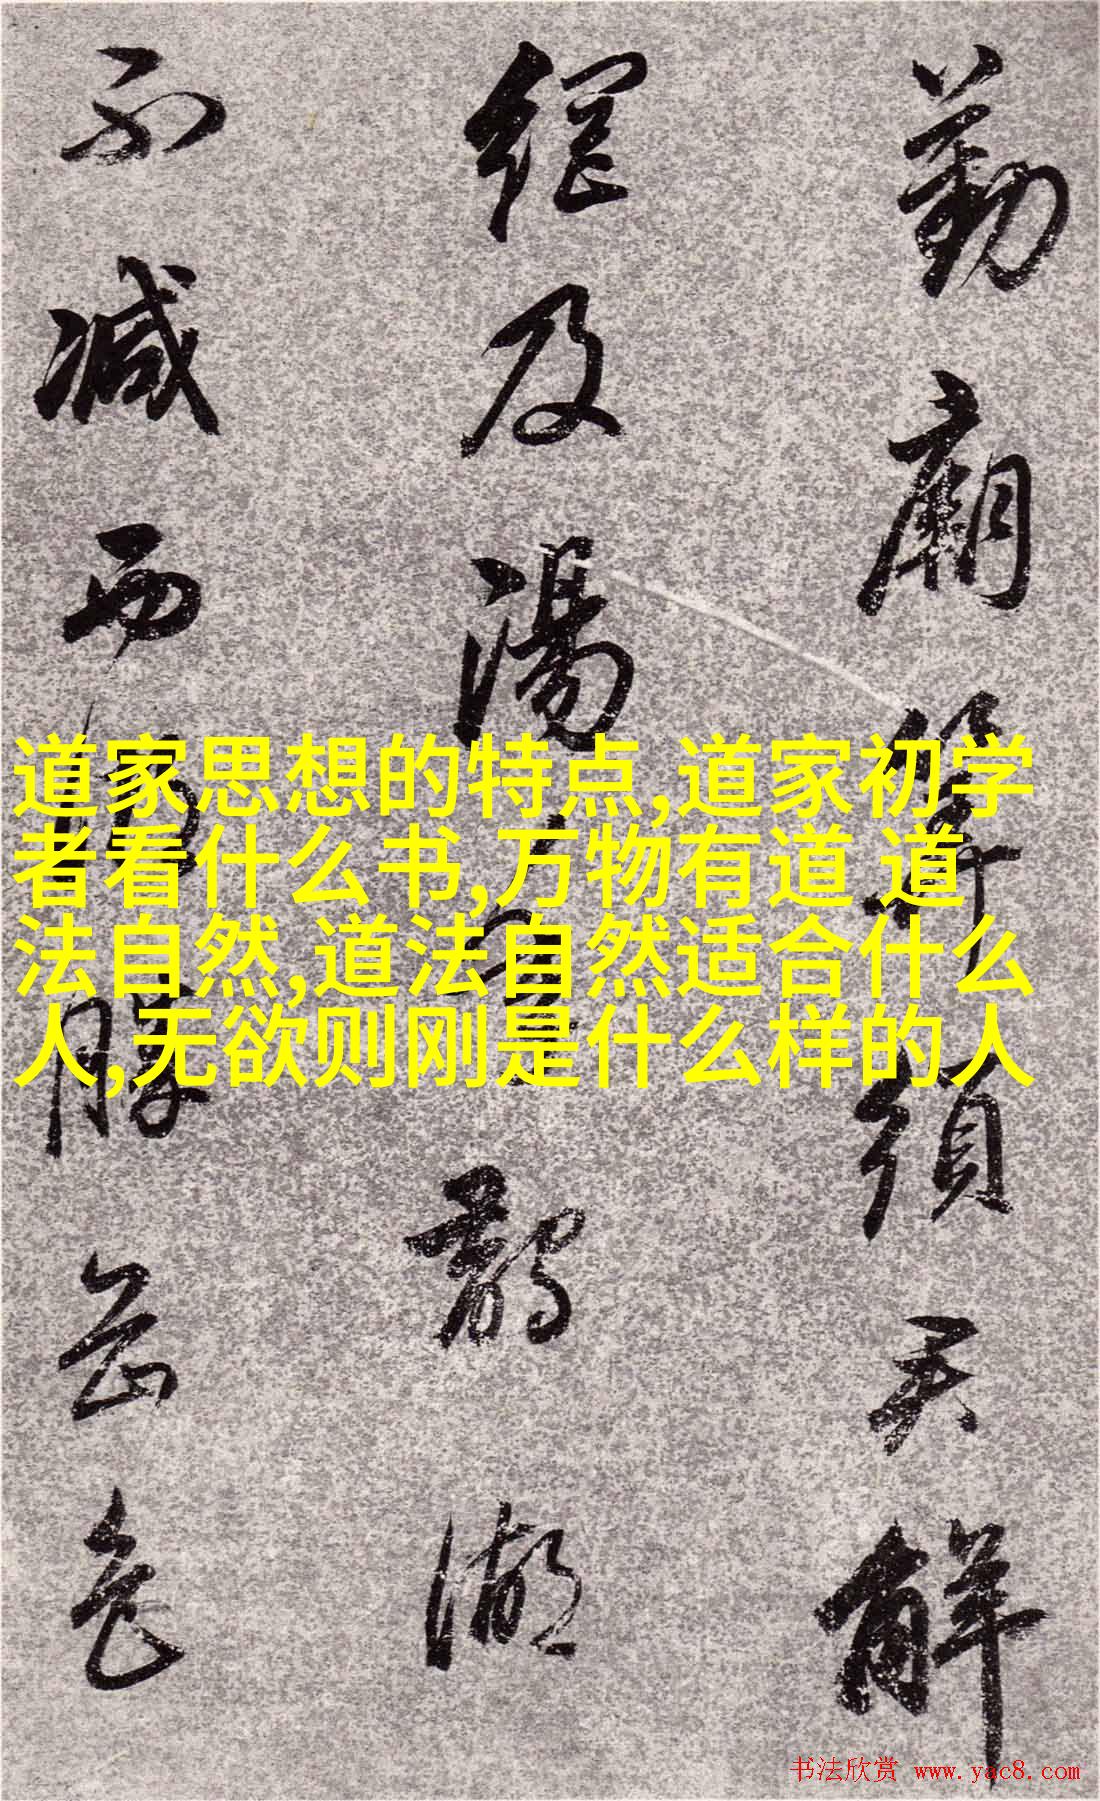 勤廟算須君解
網及湯鵲湖
不減西湖勝色
道家思想的特点,道家初学
者看什么书,万物有道 道
法自然,道法自然适合什么
人,无欲则刚是什么样的人
书法欣赏 www.yac8.com